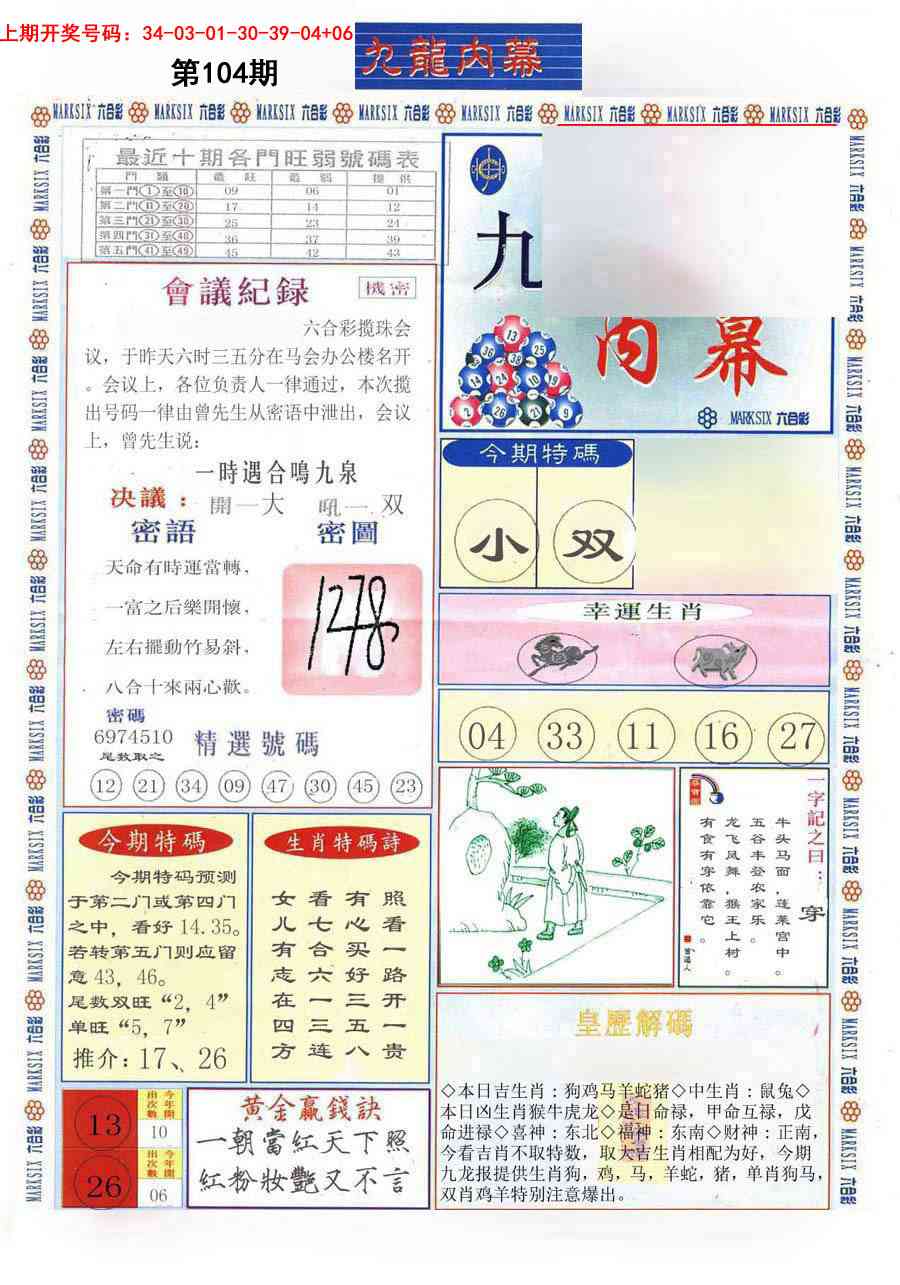 上期开奖号码：34-03-01-30-39-04+06
第104期
九龍内幕
MARKSIX 六合彩
最近十期各門旺弱號碼表
門類 最旺 最弱 提供
第一門①至⑩ 09 06 01
第二門⑪至⑳ 17 14 12
第三門㉑至㉚ 25 23 24
第四門㉛至㊵ 36 37 39
第五門㊶至㊾ 45 42 43
會議紀録
機密
六合彩揽珠会
议，于昨天六时三五分在马会办公楼名开
。会议上，各位负责人一律通过，本次揽
出号码一律由曾先生从密语中泄出，会议
上，曾先生说：
一時遇合鳴九泉
决議：開一大 吼一双
密語
天命有時運當轉，
一富之后樂開懷，
左右擺動竹易斜，
八合十來兩心歡。
密圖
1278
密碼
6974510
尾数取之
精選號碼
12 21 34 09 47 30 45 23
九
内幕
13
36 38 25
14 24 10 19
2 26 21 9
MARKSIX 六合彩
今期特碼
小 双
幸運生肖
04 33 11 16 27
一字記之曰：
穿
牛头马面，蓬莱宫中。
五谷丰登农家乐。
龙飞凤舞，猴王上村。
有食有穿依靠它。
今期特碼
今期特码预测
于第二门或第四门
之中，看好14.35。
若转第五门则应留
意43，46。
尾数双旺“2，4”
单旺“5，7”
推介：17、26
生肖特碼詩
女看有照
儿七心看
有合买一
志六好路
在一三开
四三五一
方连八贵
13
今年開出次數
10
26
今年開出次數
06
黄金赢錢訣
一朝當紅天下照
紅粉妝艷又不言
皇歷解碼
◇本日吉生肖：狗鸡马羊蛇猪◇中生肖：鼠兔◇
本日凶生肖猴牛虎龙◇是日命禄，甲命互禄，戊
命进禄◇喜神：东北◇福神：东南◇财神：正南，
今看吉肖不取特数，取大吉生肖相配为好，今期
九龙报提供生肖狗，鸡，马，羊蛇，猪，单肖狗马，
双肖鸡羊特别注意爆出。